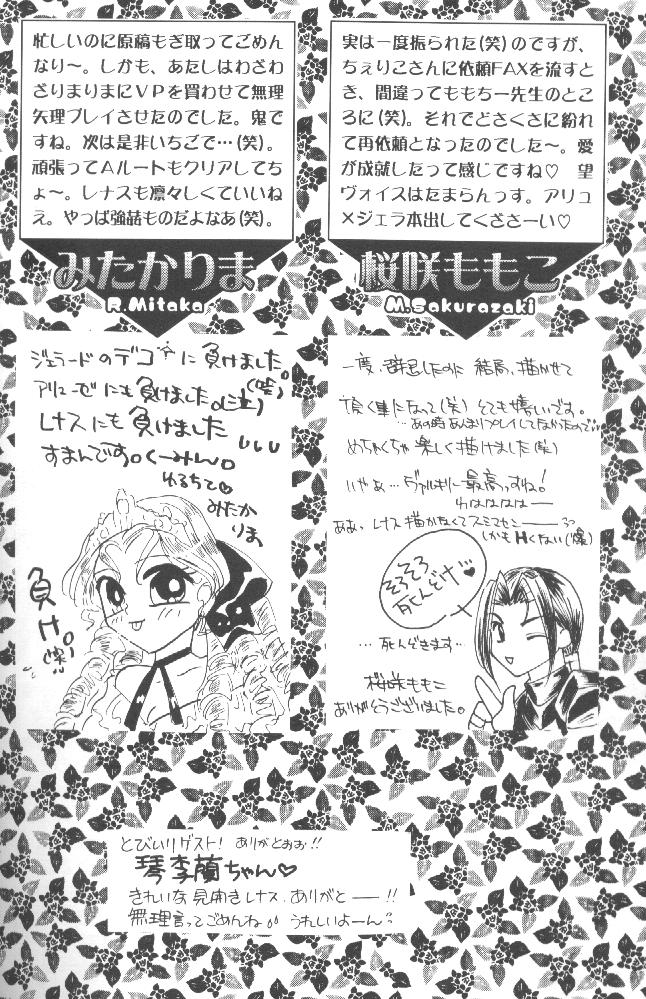 実は一度振られた(笑)のですが、
ちぇりこさんに依頼FAXを流すと
き、間違ってももちー先生のとこ
ろに(笑)。それでどさくさに紛れ
て再依頼となったのでした〜。愛
が成就したって感じですね♡　望
ヴォイスはたまらんっす。アリュ
×ジェラ本出してくださーい♡
桜咲ももこ
M.Sakurazaki
一度、群起したのに 結局、描かせて
頂く事になって(笑) とても嬉しいです。
めちゃくちゃ楽しく描けました(笑)
いやぁ…ヴァルキリに最高っすね!
わはははは—
ああ、レナス描かなくてスミマセン——
しかもHくない(爆)
そろそろ
死んどけ♥
…死んどきます…
桜咲ももこ
ありがとうございました。
忙しいのに原稿もぎ取ってごめん
なり〜。しかも、あたしはわざわ
ざりまりまにVPを買わせて無理
矢理プレイさせたのでした。鬼で
すね。次は是非いちごで…(笑)。
頑張ってAルートもクリアしてち
ょ〜。レナスも凛々しくていいね
え。やっぱ強喆ものだよなあ(笑)。
みたかりま
R.Mitaka
ジェラードのデコに負けました。
(笑)
アリューゼにも負けました。(泣)
レナスにも負けました
すまんです。くーみん。
ゆるちて♡
みたか
りま
負け。
(爆)
とびいりゲスト! ありがとおお!!
琴李蘭ちゃん♡
きれいな見開きレナス、ありがと——!!
無理言ってごめんね うれしいよーん